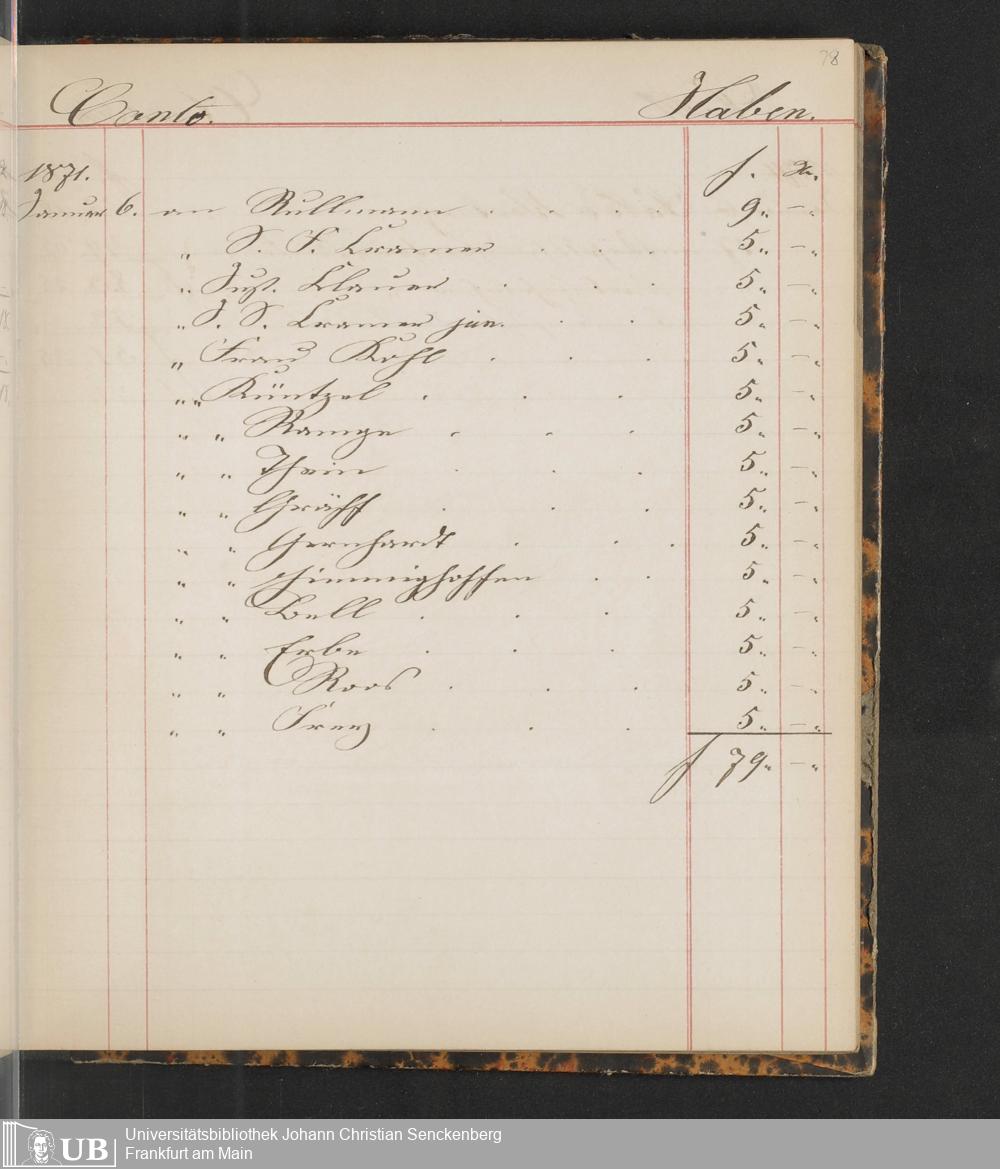 78
Conto. Haben.
1871. f. Xr.
Januar 6. an Rullmann . . . 9 „ – „
„ S. F. Cramer . . 5 „ – „
„ Just. Clauer . . . 5 „ – „
„ J. S. Cramer jun. . . 5 „ – „
„ Frau Kohl . . . 5 „ – „
„ „ Küntzel . . . 5 „ – „
„ „ Range . . . 5 „ – „
„ „ Thein . . . 5 „ – „
„ „ Gräff . . . 5 „ – „
„ „ Gernhardt . . . 5 „ – „
„ „ Himmighoffen . . 5 „ – „
„ „ Bell . . . 5 „ – „
„ „ Erbe . . . 5 „ – „
„ „ Roos . . . 5 „ – „
„ „ Frey . . . 5 „ – „
f 79 „ – „
UB
Universitätsbibliothek Johann Christian Senckenberg
Frankfurt am Main